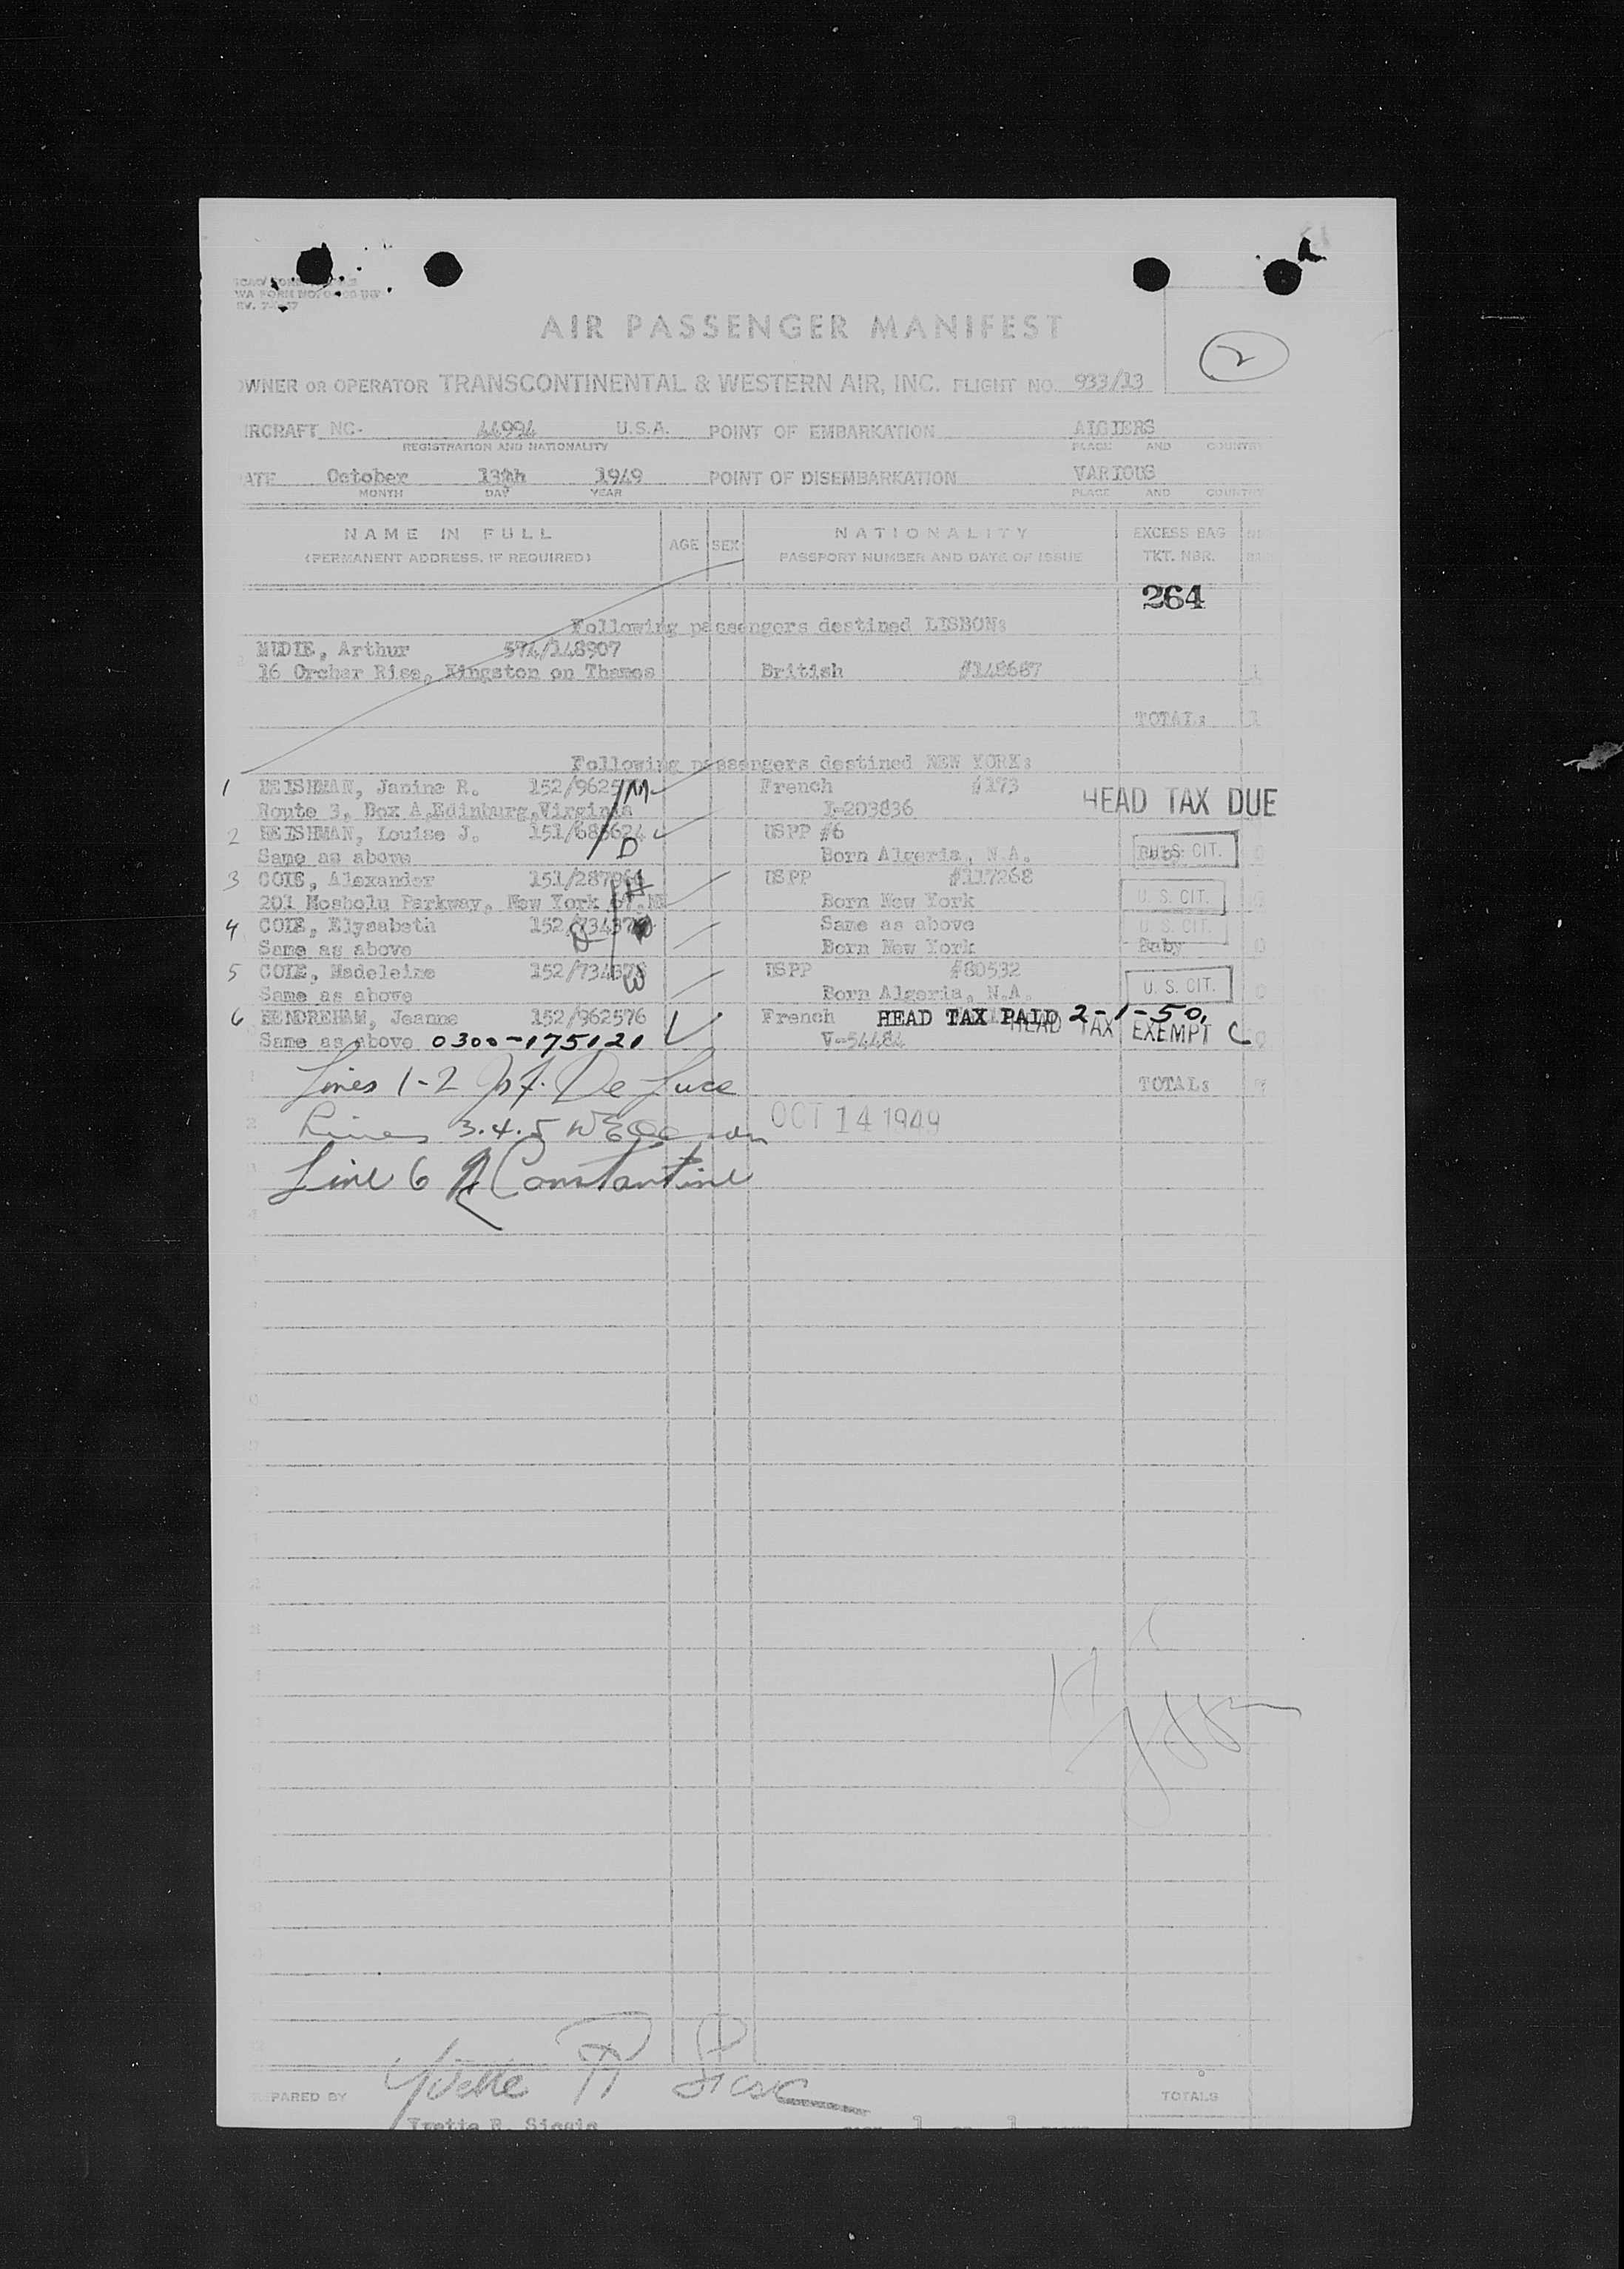 AIR PASSENGER MANIFEST
2
WNER OR OPERATOR TRANSCONTINENTAL & WESTERN AIR, INC. FLIGHT NO. 933/13
IRCRAFT NC- 44994 U.S.A. POINT OF EMBARKATION ALGIERS
REGISTRATION AND NATIONALITY PLACE AND COUNTRY
ATE October 13th 1949 POINT OF DISEMBARKATION VARIOUS
MONTH DAY YEAR PLACE AND COUNTRY
NAME IN FULL AGE SEX NATIONALITY EXCESS BAG
(PERMANENT ADDRESS, IF REQUIRED) PASSPORT NUMBER AND DATE OF ISSUE TKT. NBR.
264
Following passengers destined LISBON:
MUDIE, Arthur 574/148907
16 Orchar Rise, Kingston on Thames British #148687
TOTAL: 1
Following passengers destined NEW YORK:
1 HEISHMAN, Janine R. French #173
Route 3, Box A,Edinburg,Virginia I-203836 HEAD TAX DUE
2 HEISHMAN, Louise J. USPP #6
Same as above D Born Algeria, N.A. Baby U. S. CIT.
3 COIE, Alexander USPP #117268
201 Mosholu Parkway, New York Born New York U. S. CIT.
4 COIE, Elysabeth Same as above U. S. CIT.
Same as above Born New York Baby
5 COIE, Madeleine USPP #80532
Same as above Born Algeria, N.A. U. S. CIT.
6 Jeanne 152/962576 French HEAD TAX PAID 2-1-50,
Same as above 0300-175121 V-54484 HEAD TAX EXEMPT C
Lines 1-2 De Luce TOTAL:
Lines 3.4.5 OCT 14 1949
Line 6 Constantine
PARED BY Yvette R TOTALS